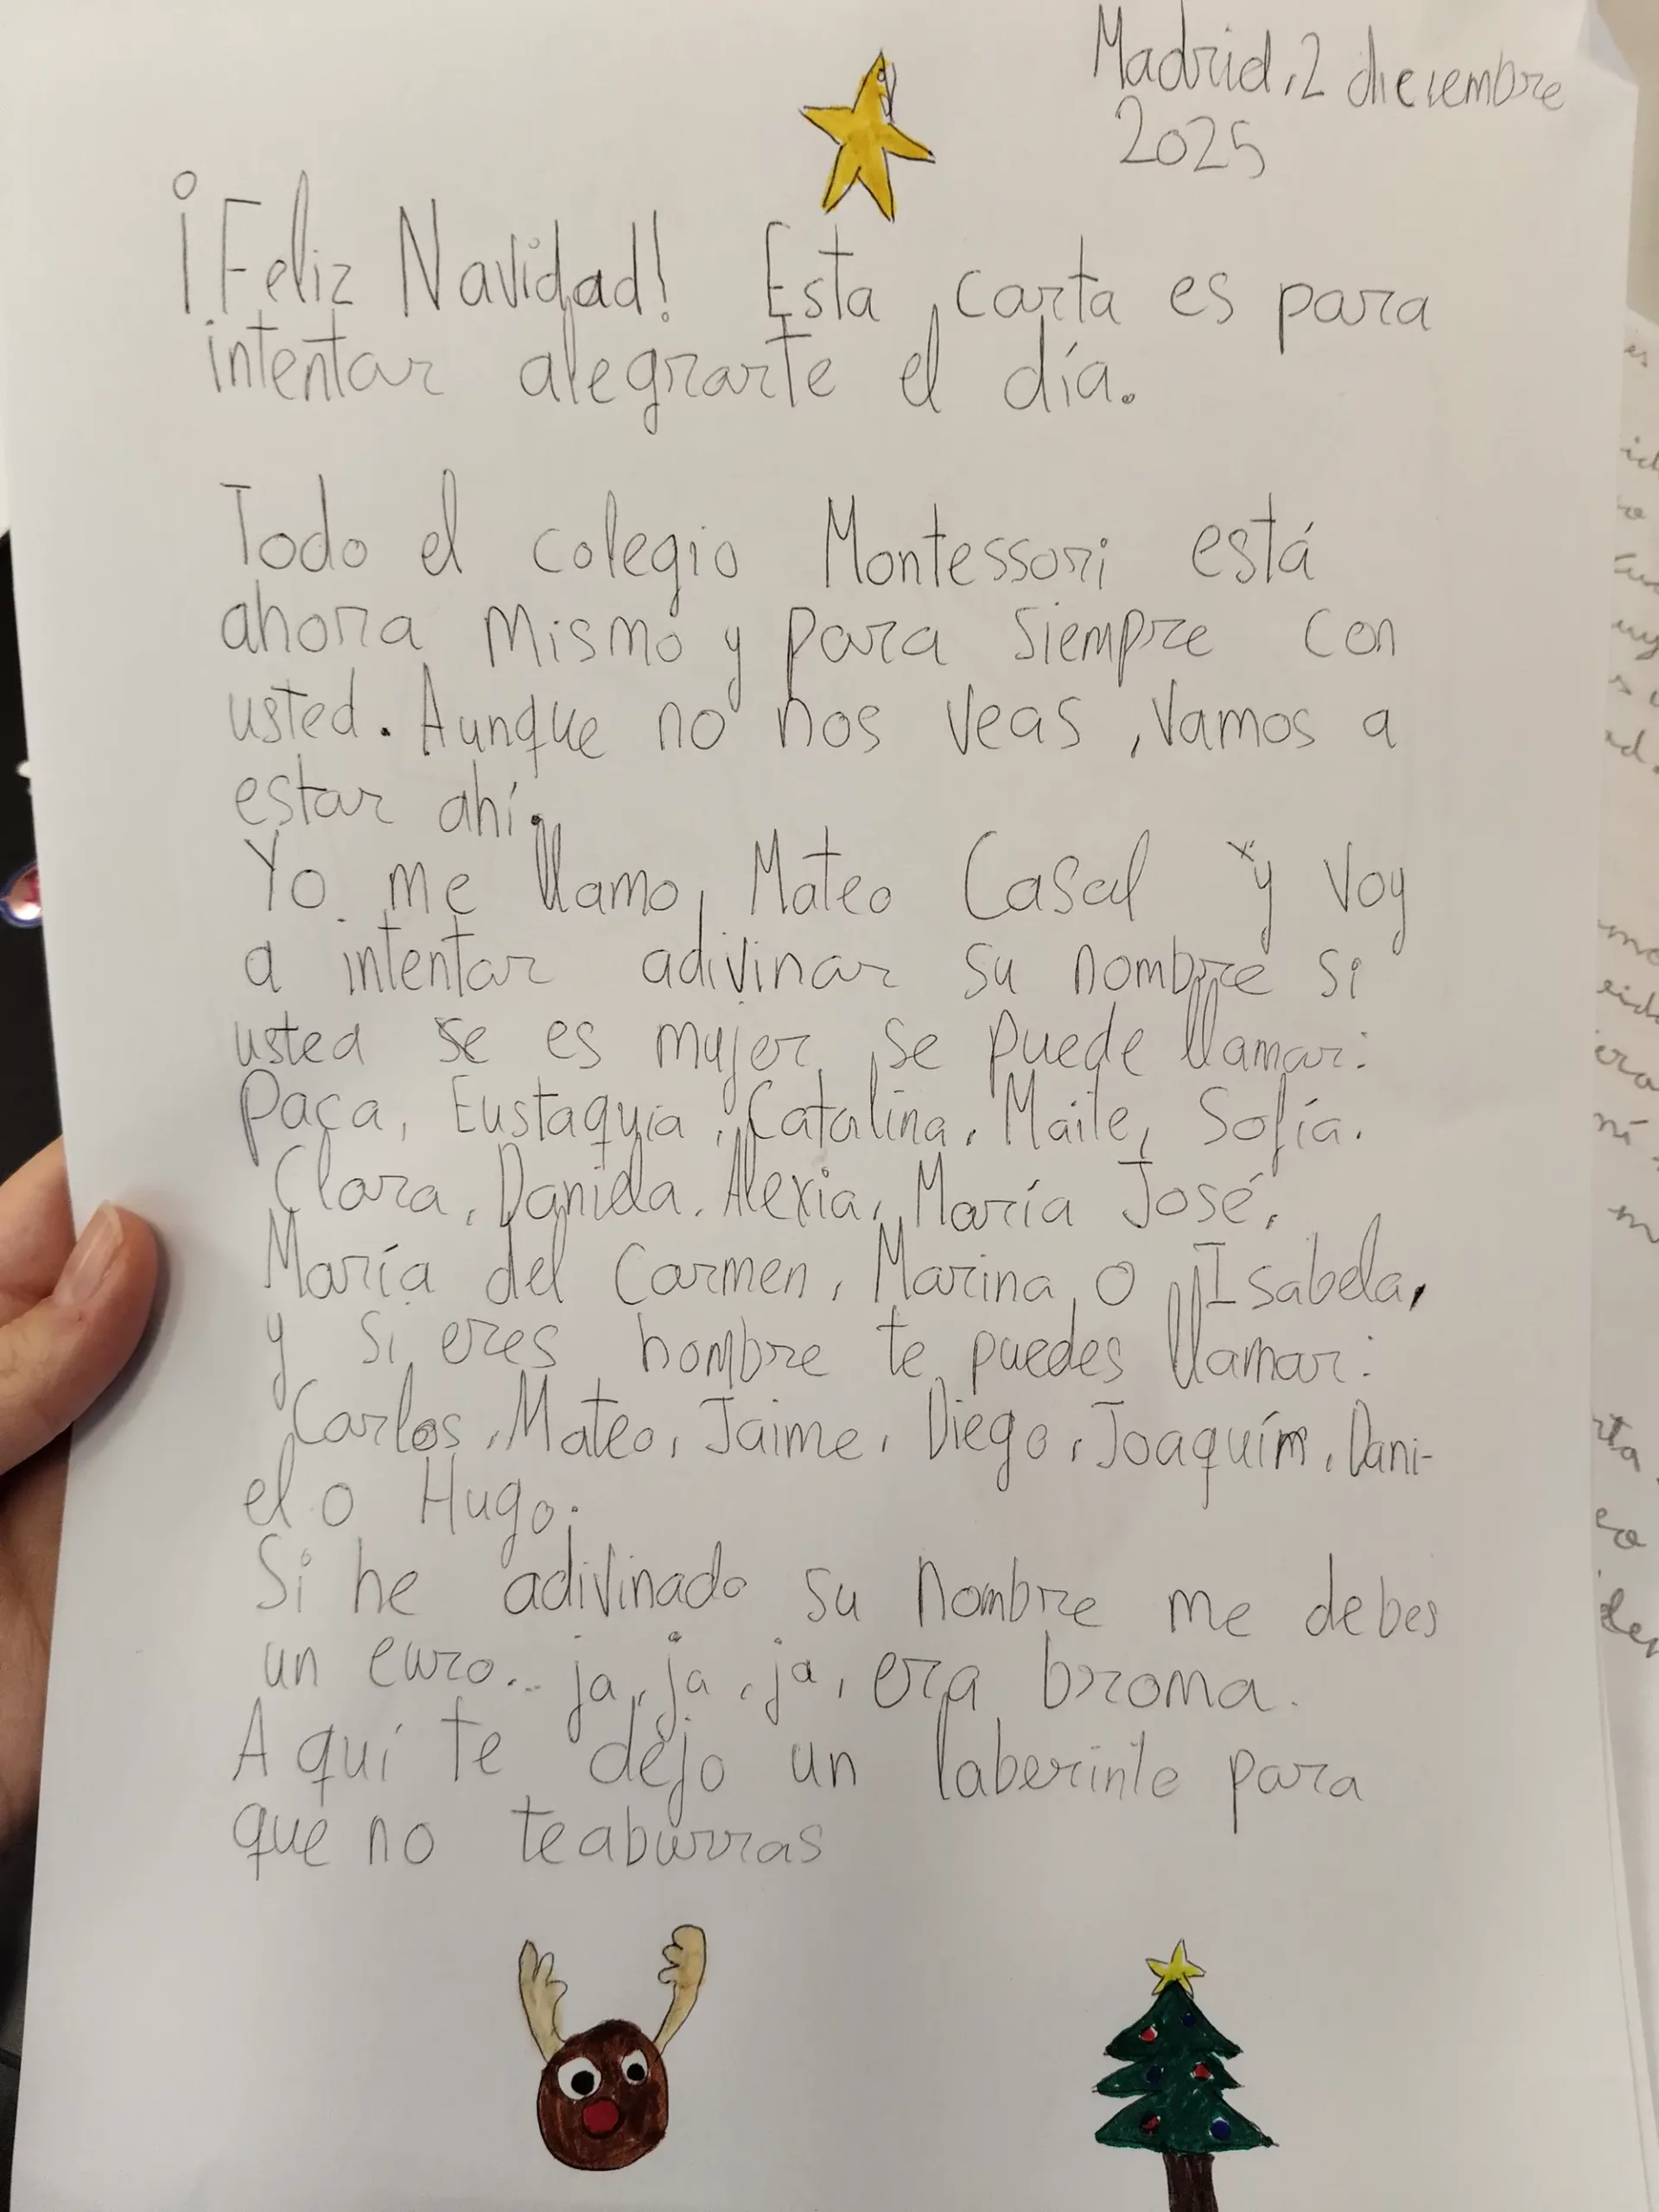 Madrid, 2 diciembre
2025
¡Feliz Navidad! Esta carta es para
intentar alegrarte el día.
Todo el colegio Montessori está
ahora mismo y para siempre con
usted. Aunque no nos veas, vamos a
estar ahí.
Yo me llamo Mateo Casal y voy
a intentar adivinar su nombre si
usted se es mujer se puede llamar:
Paca, Eustaquia, Catalina, Maite, Sofía.
Clara, Daniela, Alexia, María José,
María del Carmen, Marina o Isabela,
y si eres hombre te puedes llamar:
Carlos, Mateo, Jaime, Diego, Joaquím, Dani-
el o Hugo.
Si he adivinado su nombre me debes
un euro... ja, ja, ja, era broma.
Aquí te dejo un laberinto para
que no teaburras